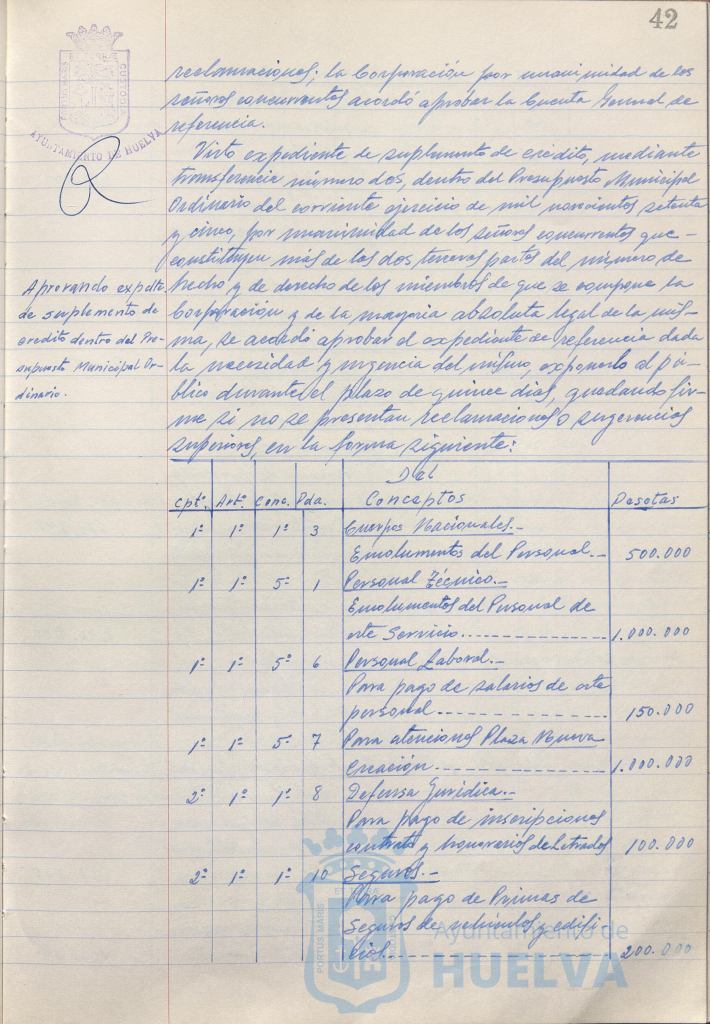 42
AYUNTAMIENTO DE HUELVA
reclamaciones; la Corporación por unanimidad de los
señores concurrentes acordó aprobar la Cuenta General de
referencia.
Visto expediente de suplemento de crédito, mediante
transferencia número dos, dentro del Presupuesto Municipal
Ordinario del corriente ejercicio de mil novecientos setenta
y cinco, por unanimidad de los señores concurrentes que
constituyen más de las dos terceras partes del número de
hecho y de derecho de los miembros de que se compone la
Corporación y de la mayoria absoluta legal de la mis-
ma, se acordó aprobar el expediente de referencia dada
la necesidad y urgencia del mismo, exponerlo al pú-
blico durante el plazo de quince dias, quedando fir-
me si no se presentan reclamaciones o sugerencias
superiores, en la forma siguiente:
Aprovando expdte.
de suplemento de
credito dentro del Pre-
supuesto Municipal Or-
dinario.
Del
Cptº. Artº. Conc. Pda. Conceptos Pesetas
1º 1º 1º 3 Cuerpos Nacionales.-
Emolumentos del Personal.- 500.000
1º 1º 5º 1 Personal Técnico.-
Emolumentos del Personal de
este Servicio.------------ 1.000.000
1º 1º 5º 6 Personal Laboral.-
Para pago de salarios de este
personal-------------- 150.000
1º 1º 5º 7 Para atenciones Plaza Nueva
Creación.-------------- 1.000.000
2º 1º 1º 8 Defensa Jurídica.-
Para pago de inscripciones
contrato y honorarios de Letrados 100.000
2º 1º 1º 10 Seguros.-
Para pago de Primas de
Seguros de vehículos y edifi-
cios.------------ 200.000
PORTUS MARIS
Ayuntamiento de
HUELVA